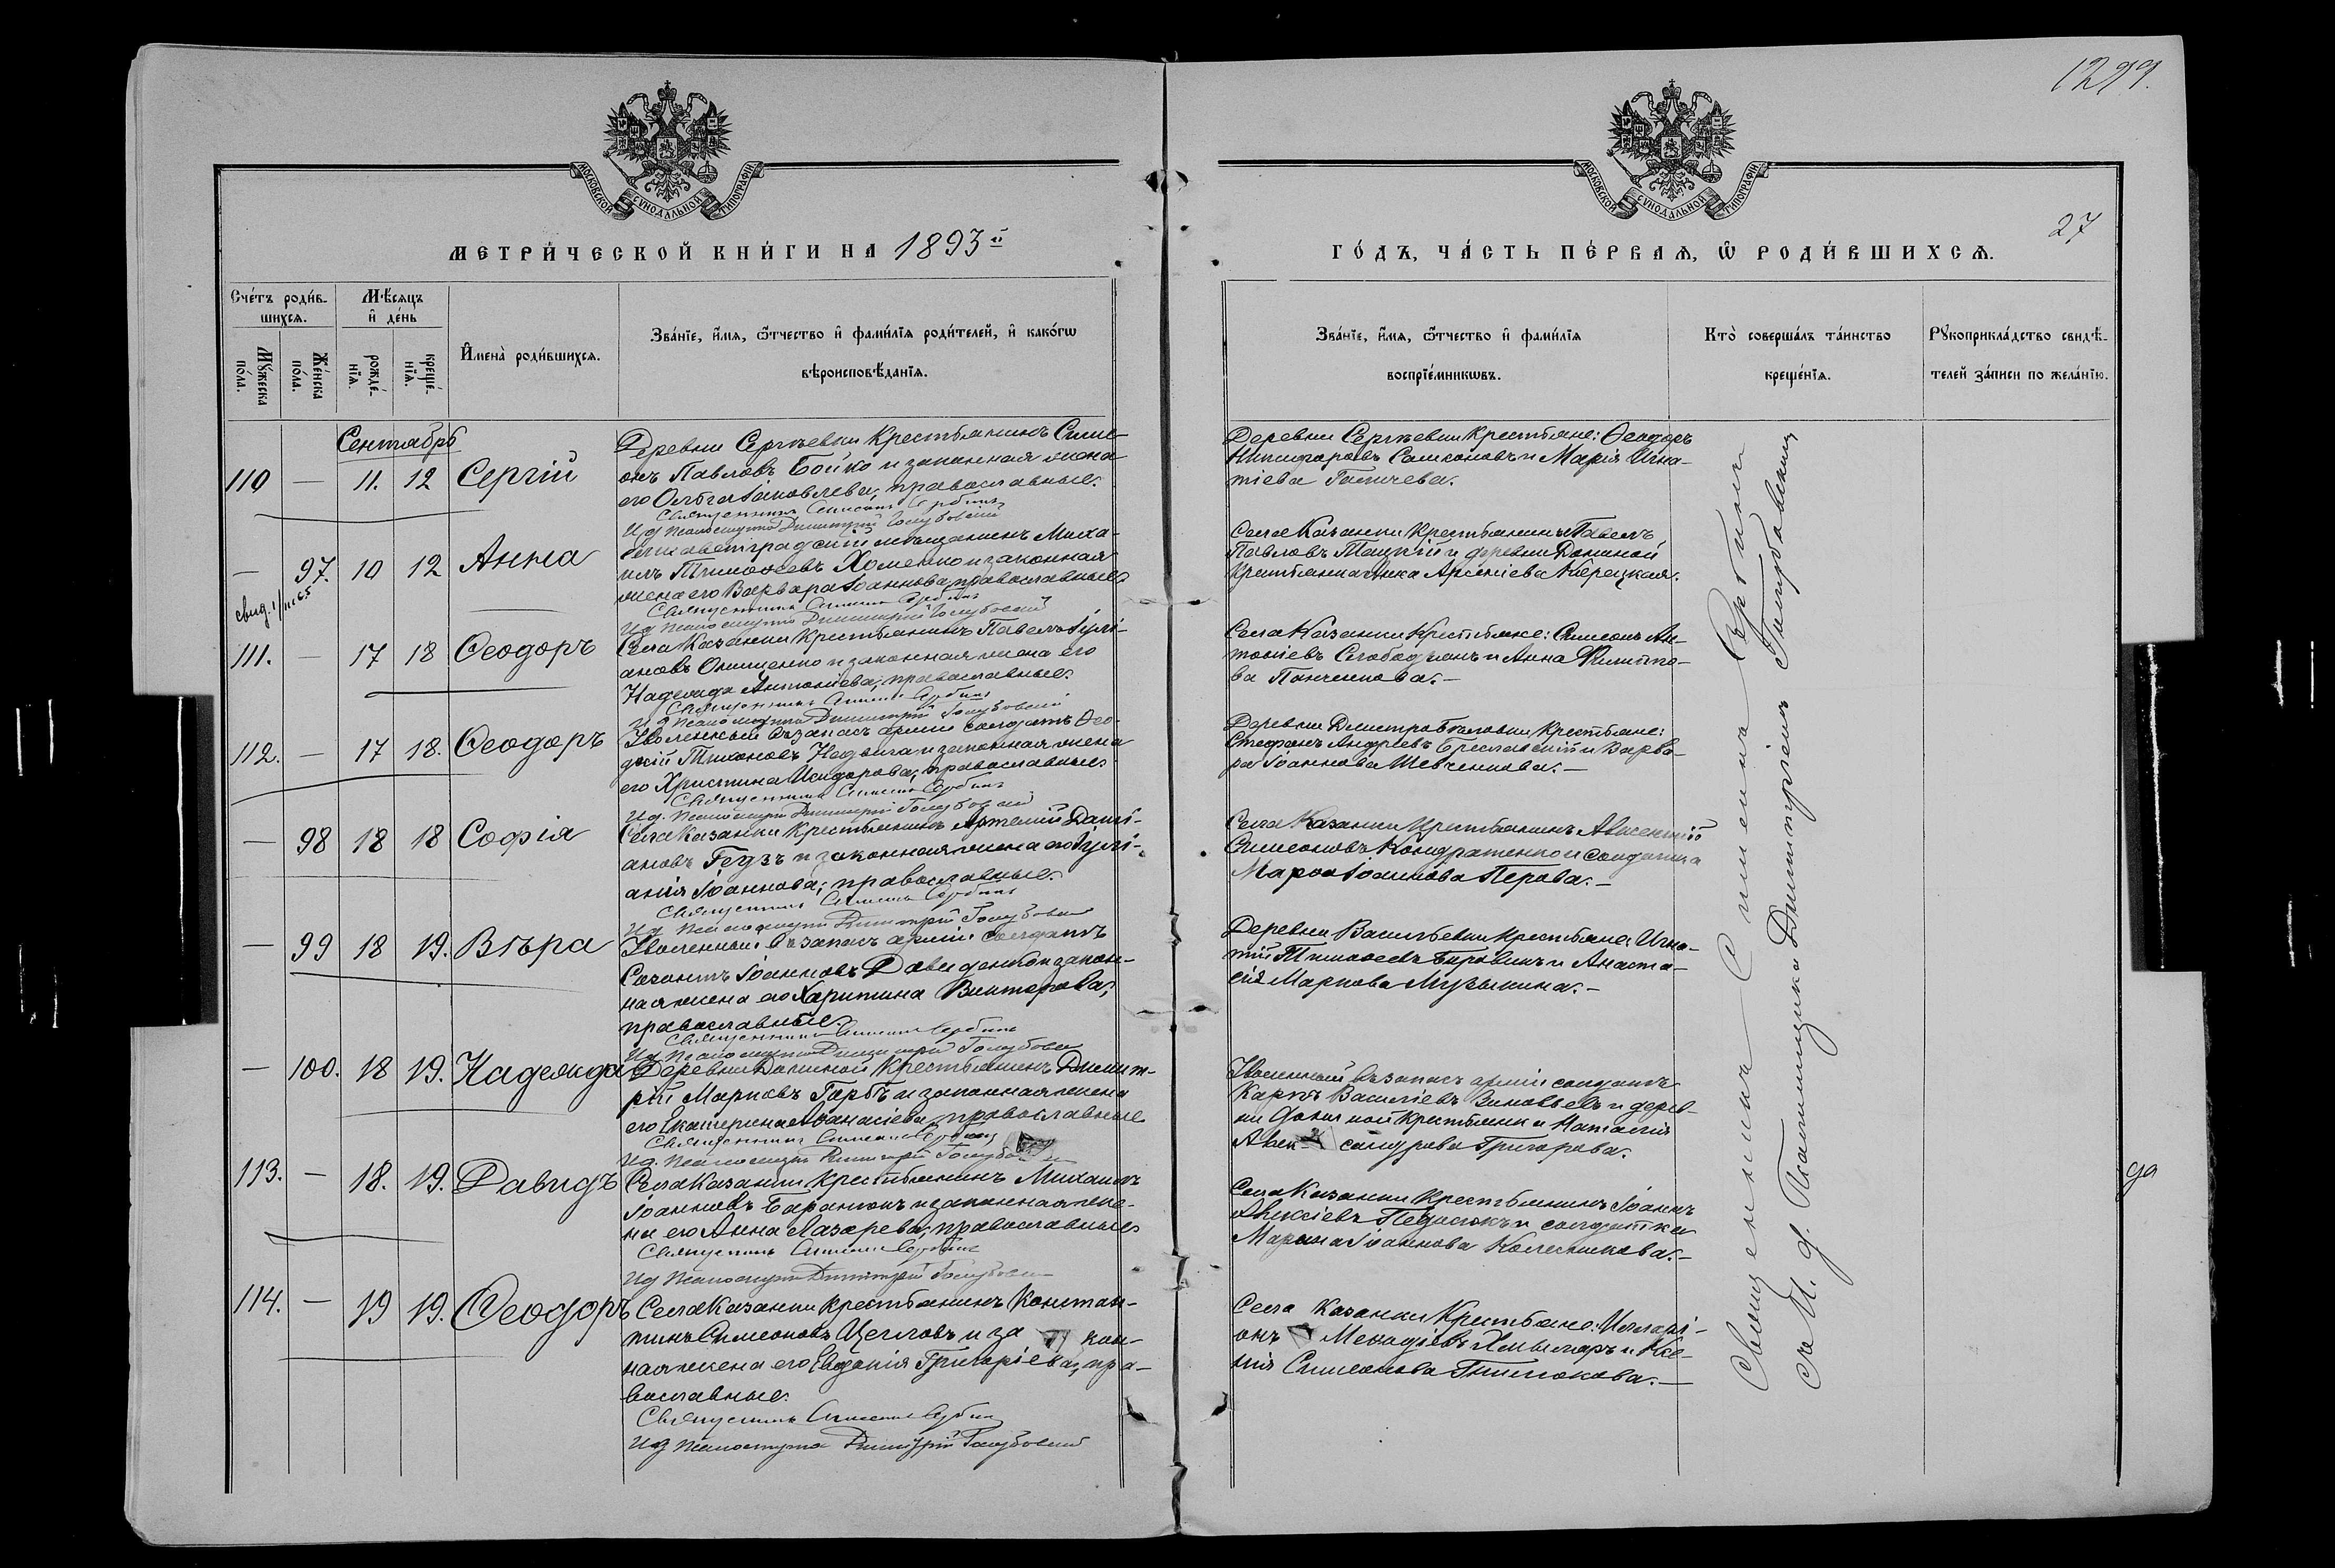 1299.
МОСКОВСКОЙ СѴНОДАЛЬНОЙ ТИПОГРАФІИ
МОСКОВСКОЙ СѴНОДАЛЬНОЙ ТИПОГРАФІИ
27
МЕТРИ́ЧЕСКОЙ КНИ́ГИ НА 1893й
ГО́ДЪ, ЧА́СТЬ ПЕ́РВАѦ, Ѿ РОДИ́ВШИХСѦ.
Сче́тъ роди́в-
шихсѧ.
Мꙋ́жеска
по́ла.
Же́нска
по́ла.
Мѣ́сѧцъ
и҆ де́нь
рожде́-
нїѧ.
креще́-
нїѧ.
И҆мена̀ роди́вшихсѧ.
Зва́нїе, и҆́мѧ, ѻ҆́тчество и҆ фами́лїѧ роди́телей, и҆ како́гѡ
вѣроисповѣ́данїѧ.
Зва́нїе, и҆́мѧ, ѻ҆́тчество и҆ фами́лїѧ
воспрїе́мникѡвъ.
Кто̀ соверша́лъ та́инство
креще́нїѧ.
Рꙋкоприкла́дство свидѣ́-
телей за́писи по жела́нїю.
Сентябрь
110 — 11. 12 Сергій
Деревни Сергѣевки крестьянинъ Симе-
онъ Павловъ Бойко и законная жена
его Ольга Іаковлева, православные.
Священникъ Симеонъ Сербинъ
Ид псаломщика Димитрій Голубовскій
Деревни Сергѣевки крестьяне: Ѳеодоръ
Никифоровъ Самконовъ и Марія Игна-
тіева
— 97. 10 12 Анна
свид.
Елисаветградскій мѣщанинъ Миха-
илъ Тимоѳеевъ Хоменко и законная
жена его Варвара Іоаннова, православные.
Священникъ Симеонъ Сербинъ
Ид псаломщика Димитрій Голубовскій
Села Казанки крестьянинъ Павелъ
Павловъ Тацкій и деревни Долиной
крестьянка Анна Арсеніева
111. — 17 18 Ѳеодоръ
Села Казанки крестьянинъ Павелъ Іулі-
ановъ Онищенко и законная жена его
Надежда Антоніева, православные.
Священникъ Симеонъ Сербинъ
Ид псаломщика Димитрій Голубовскій
Села Казанки крестьяне: Симеонъ Ан-
тоніевъ Слободянъ и Анна Филиппо-
ва Панченкова.—
112. — 17 18. Ѳеодоръ
Уволенный въ запасъ арміи солдатъ Ѳео-
досій Тихоновъ Недвига и законная жена
его Христина Исидорова, православные.
Священникъ Симеонъ Сербинъ
Ид. псаломщика Димитрій Голубовскій
Деревни Дмитробѣловки крестьяне:
Стефанъ Андреевъ Бреславскій и Варва-
ра Іоаннова Шевченкова.—
— 98 18 18 Софія
Села Казанки крестьянинъ Артемій Дамі-
ановъ Гедзъ и законная жена его Іулі-
анія Іоаннова; православные.
Священникъ Симеонъ Сербинъ
Ид псаломщика Димитрій Голубовскій
Села Казанки крестьянинъ Авксентій
Симеоновъ Кондратенко и солдатка
Марѳа Іоаннова Перова.—
— 99 18 19. Вѣра
Уволенный въ запасъ арміи солдатъ
Созонтъ Іоанновъ Давиденко и закон-
ная жена его Харитина Викторова,
православные.
Священникъ Симеонъ Сербинъ
Ид псаломщика Димитрій Голубовскій
Деревни Васильевки крестьяне: Игна-
тій Тимоѳеевъ Боровикъ и Анаста-
сія Маркова Музыкина.—
— 100. 18 19. Надежда
Деревни Долиной крестьянинъ Димит-
рій Марковъ Горбъ и законная жена
его Екатерина Аѳанасіева, православные
Священникъ Симеонъ Сербинъ
Ид. псаломщика Димитрій Голубовскій
Уволенный въ запасъ арміи солдатъ
Карпъ Василіевъ Зиновьевъ и дерев-
ни Долиной крестьянка Наталія
Алек сандрова Григорова.
113. — 18. 19. Давидъ
Села Казанки крестьянинъ Михаилъ
Іоанновъ Баранюкъ и законная же-
на его Анна Лазарева, православные
Священникъ Симеонъ Сербинъ
Ид псаломщика Димитрій Голубовскій
Села Казанки крестьянинъ Іоаннъ
Алексіевъ Педасюкъ и солдатка
Марина Іоаннова Колесникова.—
да
114. — 19 19. Ѳеодоръ
Села Казанки крестьянинъ Констан-
тинъ Симеоновъ Цегловъ и за кон-
ная жена его Евдокія Григоріева, пра-
вославные.
Священникъ Симеонъ Сербинъ
Ид псаломщика Димитрій Голубовскій
Села Казанки крестьяне: Иларі-
онъ Меѳодіевъ и Ксе-
нія Симеонова
Священникъ Симеонъ Сербинъ
съ И. д. Псаломщика Димитріемъ Голубовскимъ